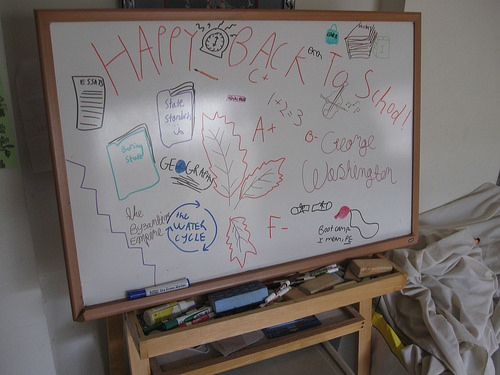 HAPPY BACK To School!
ESSAY
State Standards Yo
Boring Stuff
GEOGRAPHY
C+
1+2=3
A+
B-
George Washington
the Byzantine Empire
the WATER CYCLE
F-
Boot camp
I mean, PE